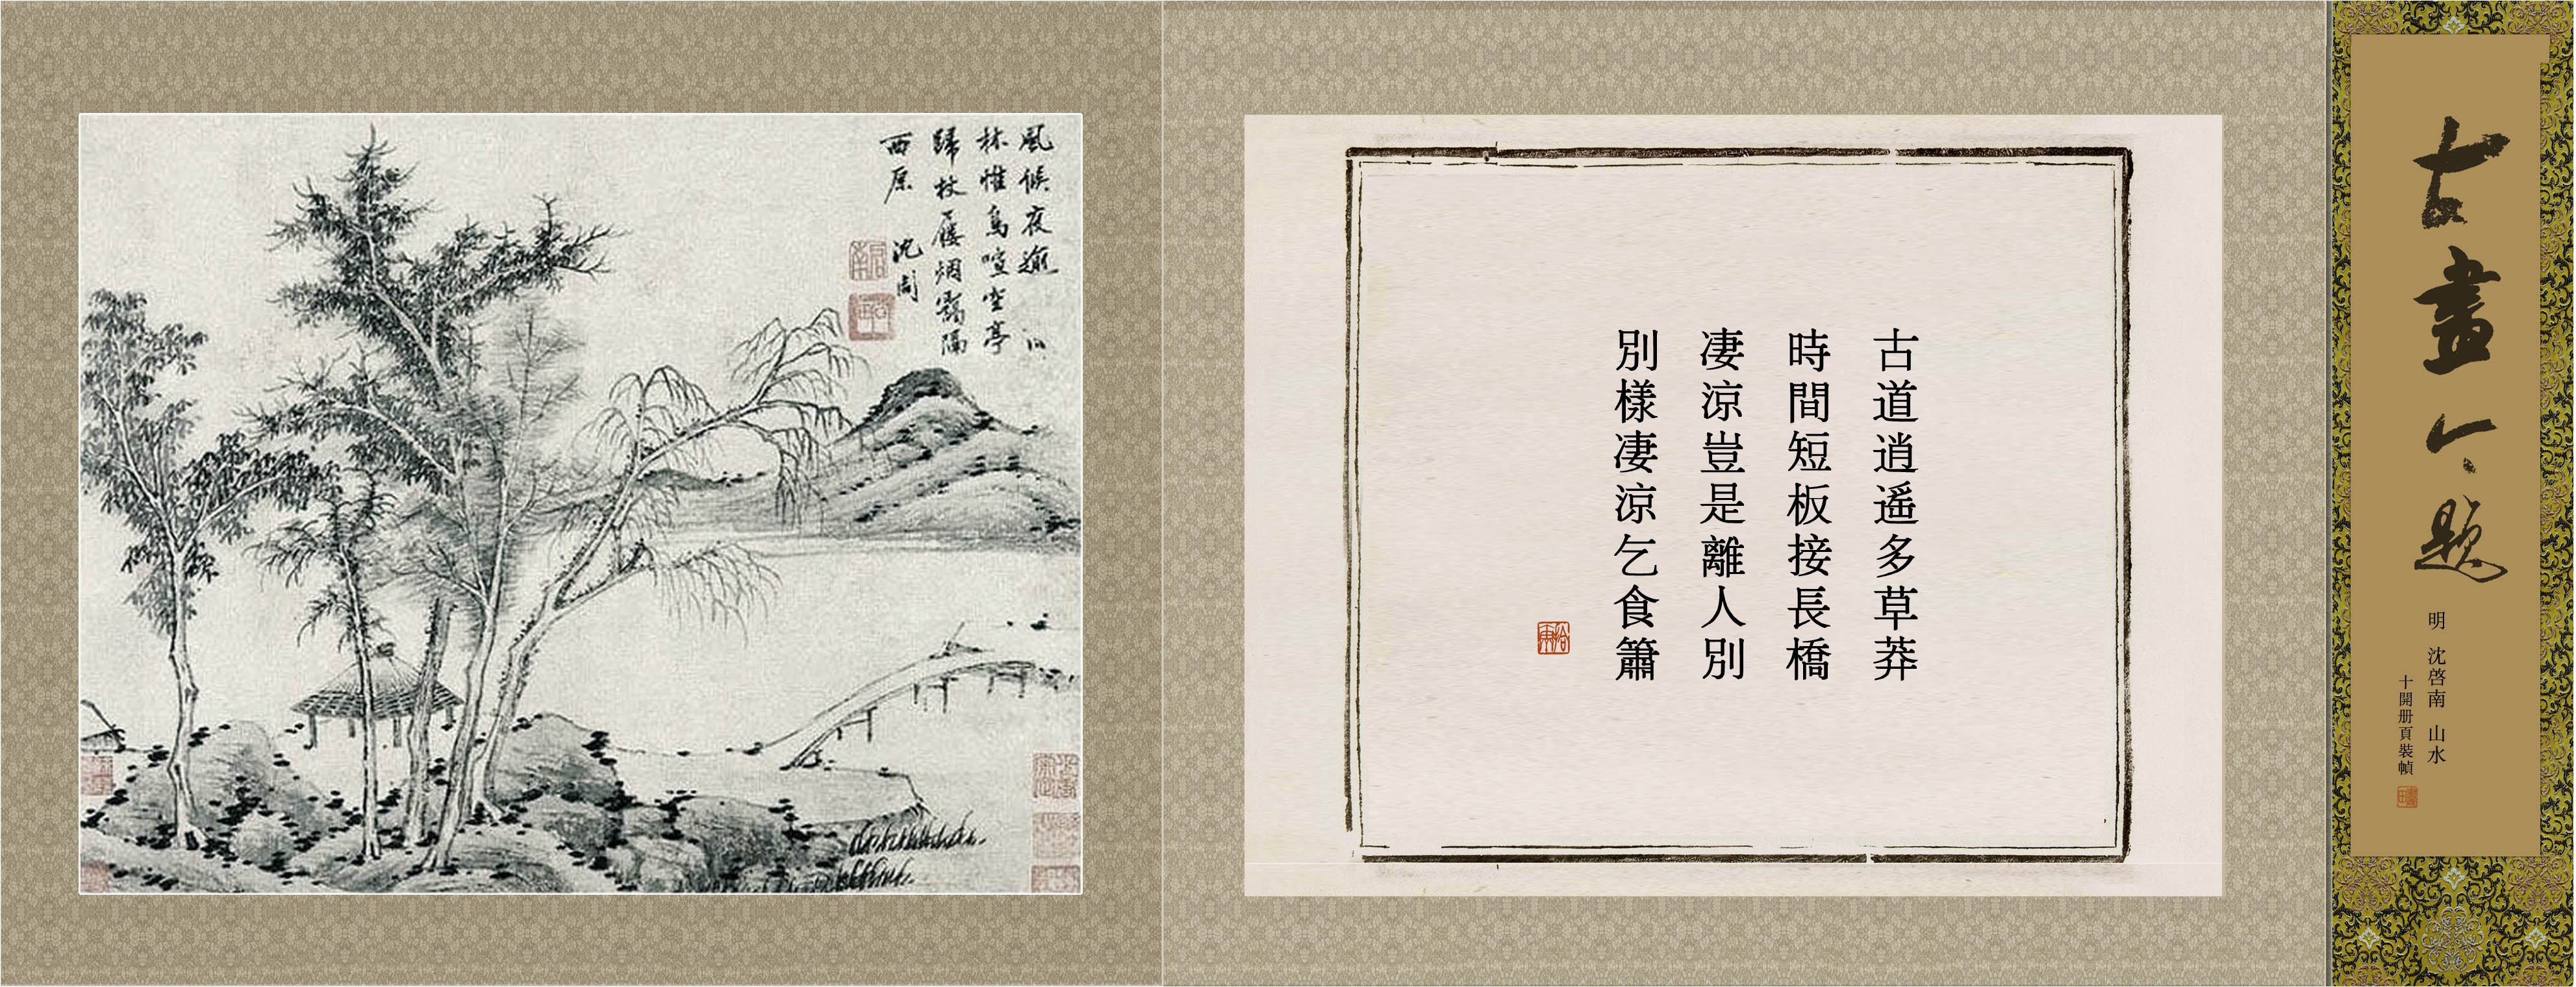 古畫今題
明 沈啓南 山水
十開册頁裝幀
古道逍遙多草莽
時間短板接長橋
凄涼豈是離人別
別樣凄涼乞食簫
風候夜
林惟鳥喧空亭
歸杖屨烟靄隔
西原
沈周